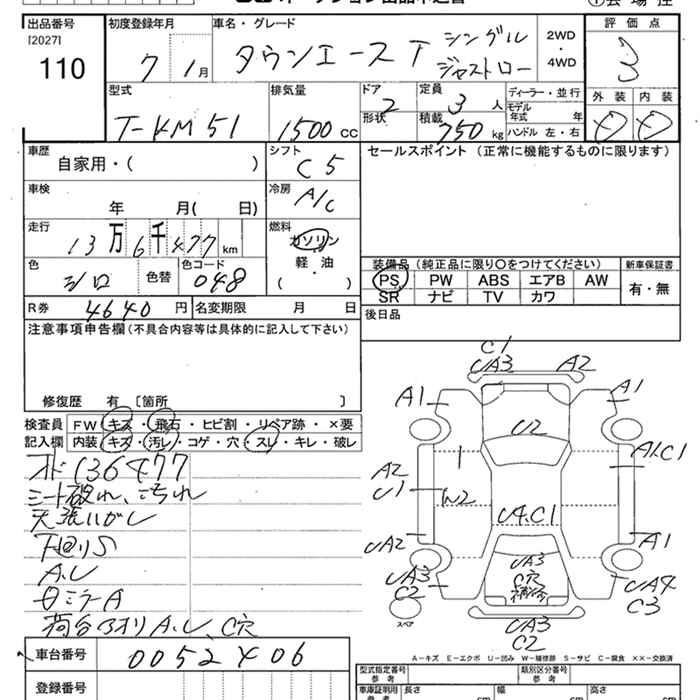 出品番号
[2027]
110
初度登録年月
7 1月
車名・グレード
タウンエースT シングル
ジャストロー
2WD
・
4WD
評 価 点
3
外 装 内 装
D D
型式
T-KM51
排気量
1500 cc
ドア
2
形状
定員
3 人
積載
750 kg
ディーラー・並行
モデル
年式 年
ハンドル 左・右
車歴
自家用・( )
シフト
C5
セールスポイント (正常に機能するものに限ります)
車検
年 月( 日)
冷房
A/C
走行
13万6千477km
燃料
ガソリン
軽・油
( )
色
シロ 色替
色コード
048
装備品 (純正品に限り○をつけてください)
PS PW ABS エアB AW
SR ナビ TV カワ
新車保証書
有・無
R券 4640円
名変期限 月 日
後日品
注意事項申告欄 (不具合内容等は具体的に記入して下さい)
修復歴 有 [箇所 ]
検査員
記入欄
FW キズ・飛石・ヒビ割・リペア跡・×要
内装 キズ・汚レ・コゲ・穴・スレ・キレ・破レ
オド136477
シート破れ、汚れ
天張いがし
下回りS
A.U
日ミラーA
荷台アオリA.U、C穴
C1
UA3 A2
A1 A1
U2
A1.C1
A2
U1
W2
UA.C1
UA2 A1
UA3
C2
UA3
C穴
UA4
C3
スペア
UA3
C2
A－キズ E－エクボ U－凹み W－補修跡 S－サビ C－腐食 ××－交換済
車台番号 0052406
登録番号
型式指定番号
参考
類別区分番号
参考
車庫証明用
参考
長さ cm
幅 cm
高さ cm